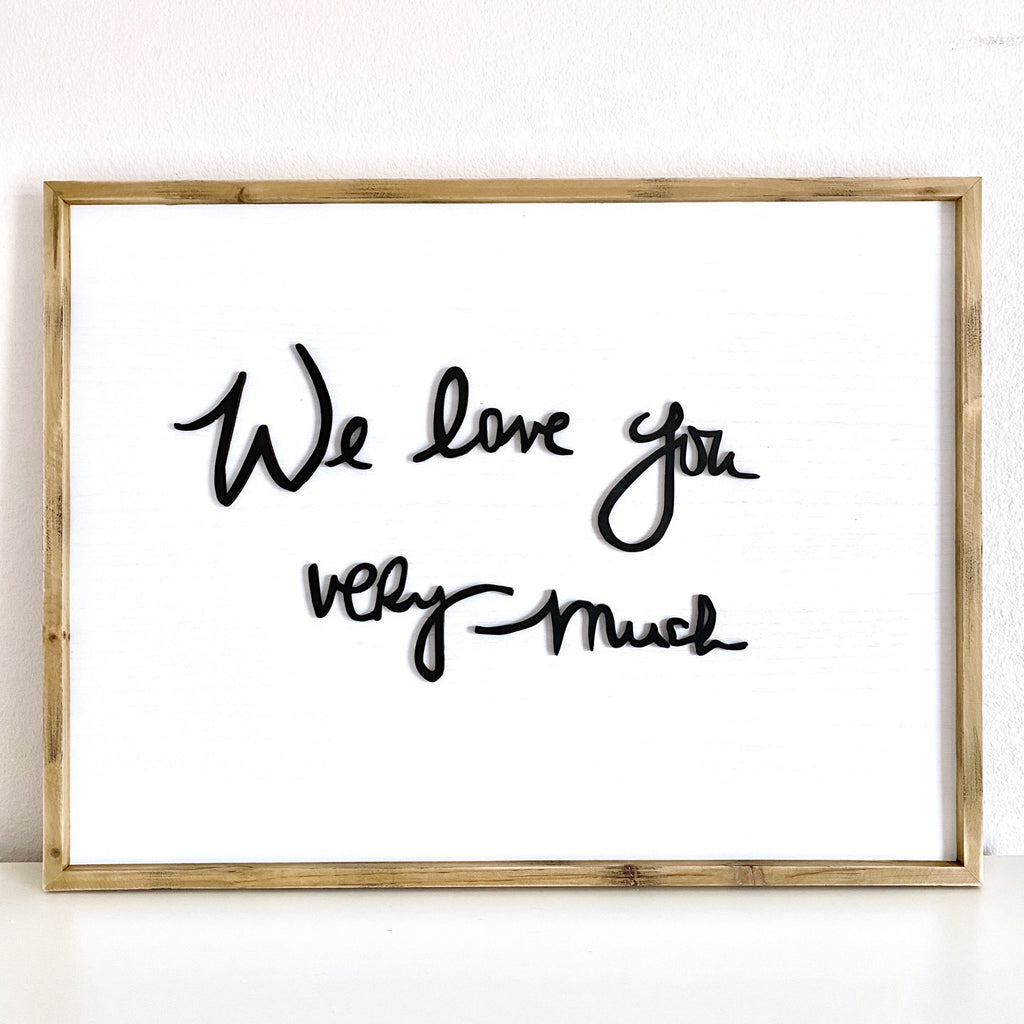 We love you
very much